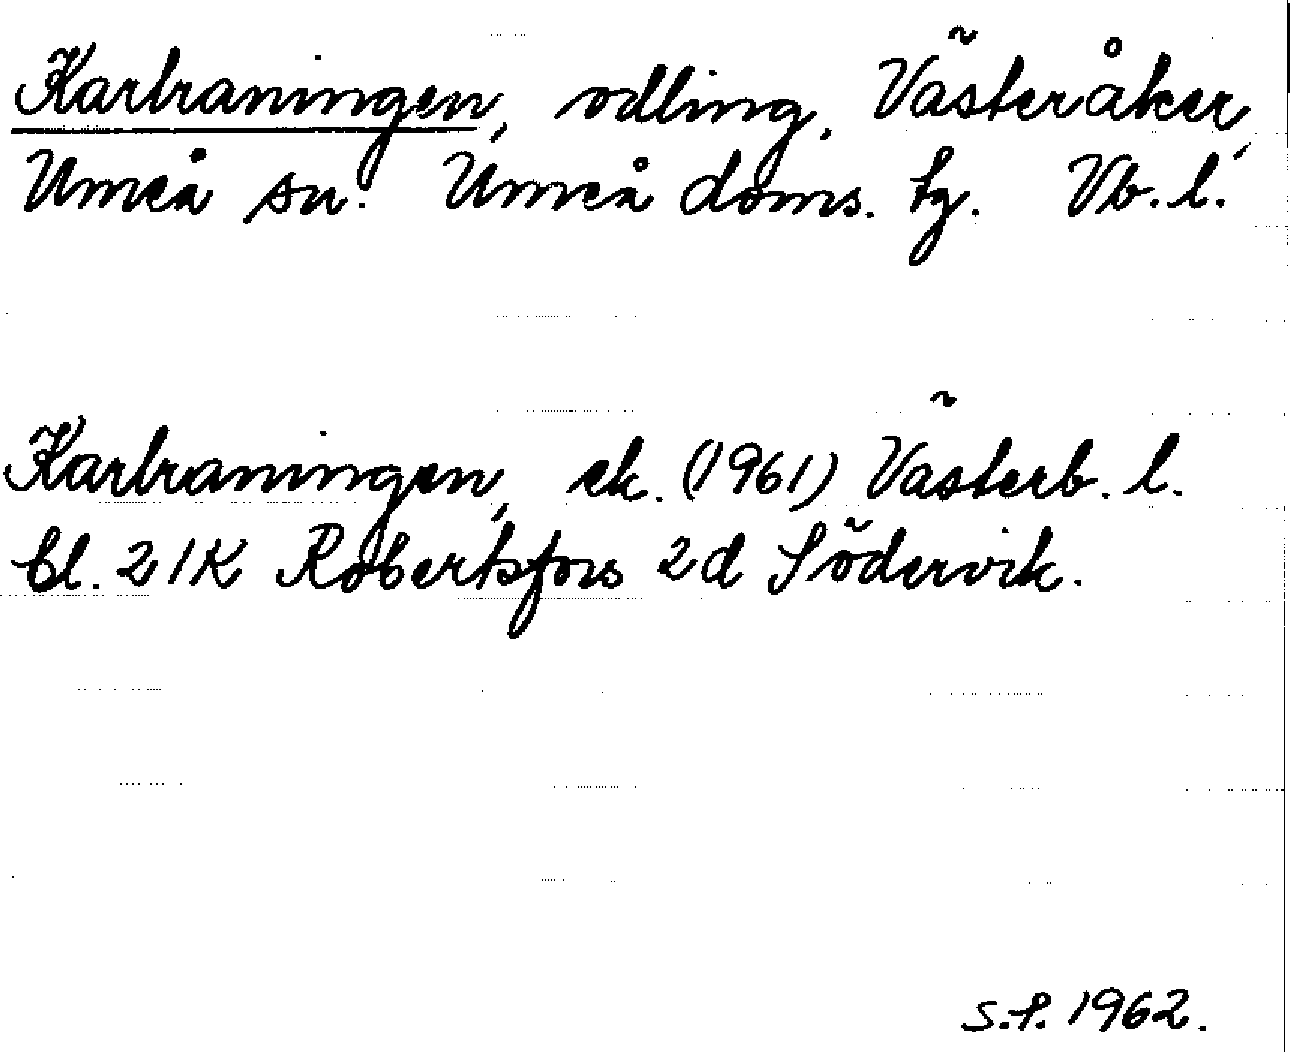 Karlraningen, odling, Västeråker,
Umeå sn. Umeå doms. tg. Vb. l.
Karlraningen, ek. (1961) Västerb. l.
bl. 21K Robertsfors 2d Södervik.
S.f. 1962.